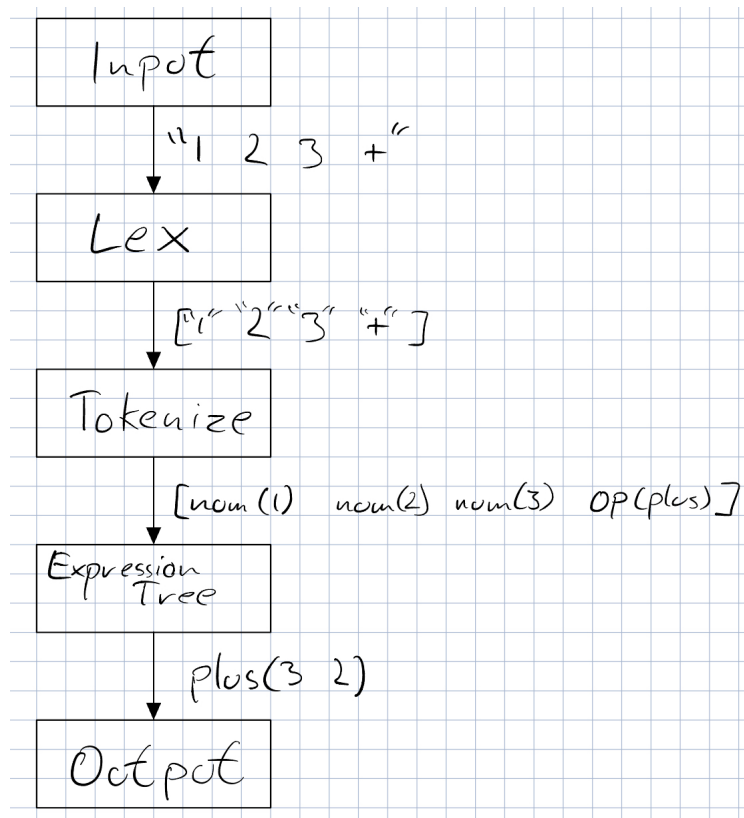 Input
"1 2 3 +"
Lex
["1" "2" "3" "+"]
Tokenize
[num(1) num(2) num(3) op(plus)]
Expression
Tree
plus(3 2)
Output